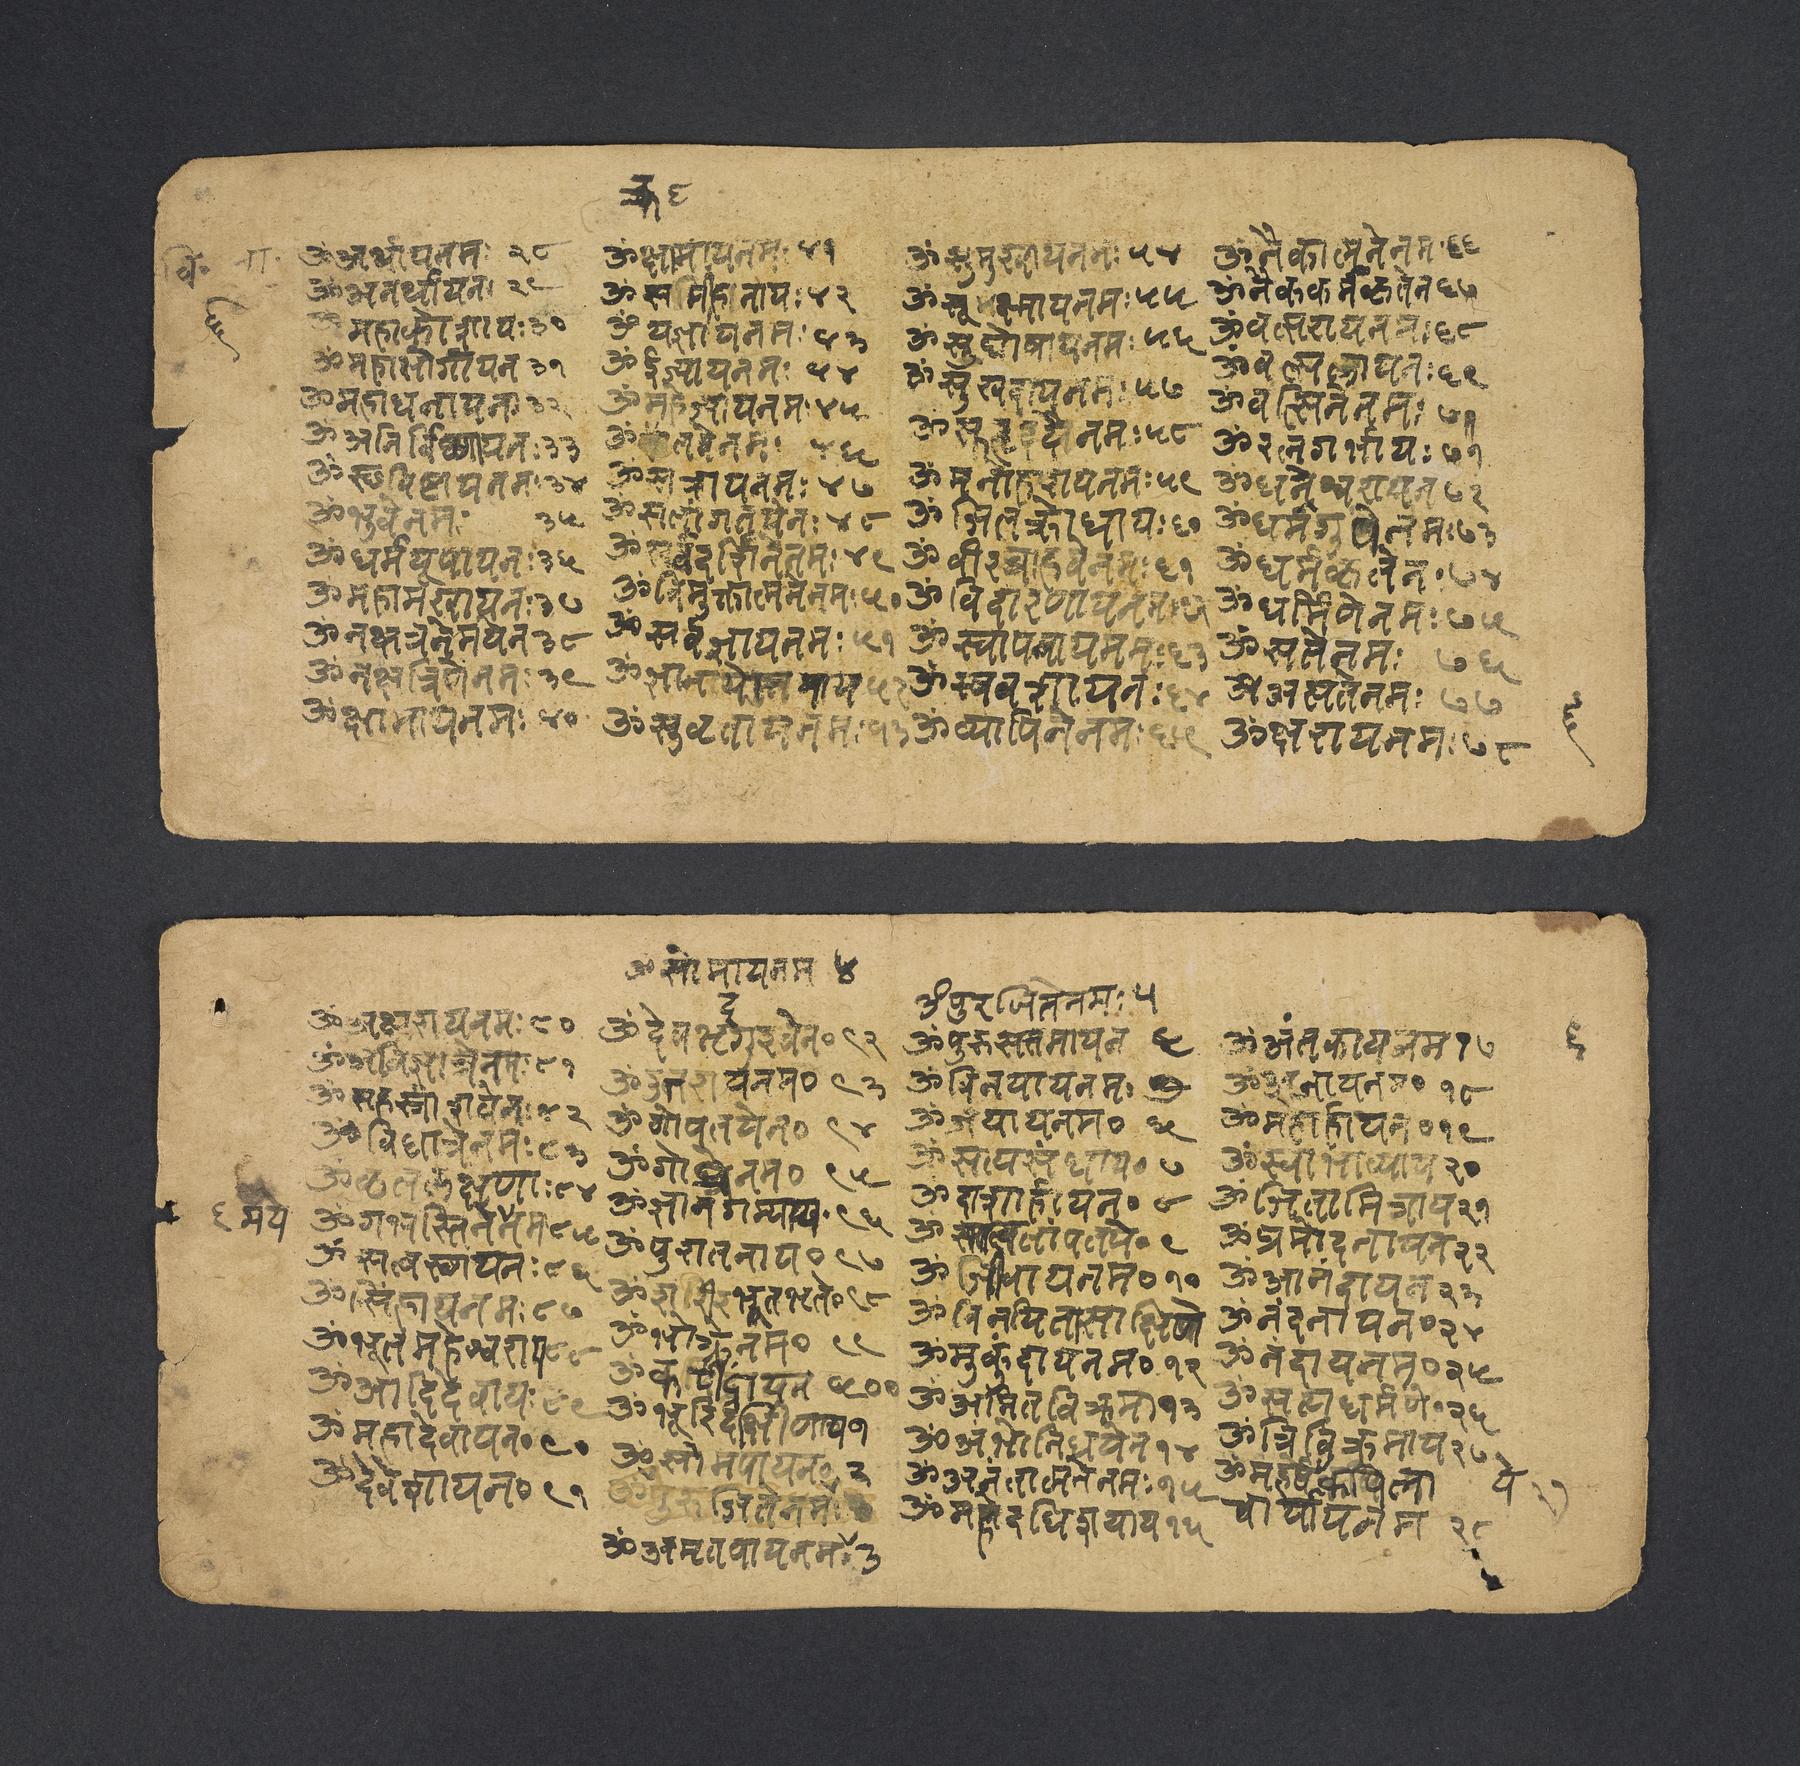 ६
ॐअर्थायनमः २८
ॐअनर्थायनः २९
महाकोशायः३०
ॐमहाभोगायन ३१
ॐमहाधनायनः३२
ॐअनिर्विण्णायनः३३
ॐस्थविष्टायनमः३४
ॐभुवेनमः ३५
ॐधर्मयूपायनः३६
ॐमहामखायनः३७
ॐनक्षत्रनेमयेन३८
ॐनक्षत्रिणेनमः३९
ॐक्षामायनमः४०
ॐक्षामायनमः४१
ॐसमीहानायः४२
ॐयज्ञायनमः४३
ॐईज्यायनमः ४४
ॐमहेज्यायनमः४५
ॐक्रतवेनमः ४६
ॐसत्रायनमः ४७
ॐसतांगतयेनः४८
ॐसर्वदर्शिनेनमः४९
ॐविमुक्तात्मनेनमः५०
ॐसर्वज्ञायनमः५१
ॐसुव्रतायनमः५३
ॐसुमुखायनमः५४
ॐसूक्ष्मायनमः५५
ॐसुघोषायनमः५६
ॐसुखदायनमः५७
ॐसुहृदेनमः५८
ॐमनोहरायनमः५९
ॐजितक्रोधायः६०
ॐवीरबाहवेनमः६१
ॐविदारणायनमः
ॐस्वापनायनमः६३
ॐस्ववशायनः६४
ॐव्यापिनेनमः६५
ॐनैकात्मनेनमः६६
ॐनैककर्मकृतेन६७
ॐवत्सरायनमः६८
ॐवत्सलायनः६९
ॐवत्सिनेनमः७०
ॐरत्नगर्भायः७१
ॐधनेश्वरायन७२
ॐधर्मगुपेनमः७३
ॐधर्मकृतेनः७४
ॐधर्मिणेनमः७५
ॐसतेनमः ७६
ॐअसतेनमः ७७
ॐक्षरायनमः७८
६
ॐसोमायनम ४
ॐअक्षरायनमः८०
ॐअविज्ञात्रेनमः८१
ॐसहस्त्रांशवेनः८२
ॐविधात्रेनमः८३
ॐकृतलक्षणाः८४
ॐगभस्तिनेमेनम८५
ॐसत्वस्थायनः८६
ॐसिंहायनमः८७
ॐभूतमहेश्वराय८८
ॐआदिदेवायः८९
ॐमहादेवायन०९०
ॐदेवेशायन०९१
ॐदेवभृद्गुरवेन०९२
ॐउत्तरायनम०९३
ॐगोपतयेन०९४
ॐगोप्त्रेनम०९५
ॐज्ञानगम्याय०९६
ॐपुरातनाय०९७
ॐशरीरभूतभृते०९८
ॐभोक्त्रेनम०९९
ॐकपींद्रायन ५००
ॐभूरिदक्षिणाय१
ॐसोमपायन०२
ॐपुरुजितेनमः
ॐअमृतपायनमः३
ॐपुरजितेनमः५
ॐपुरुसत्तमायन
ॐविनयायनमः
ॐजयायनम० ६
ॐसत्यसंधाय०७
ॐदाशार्हायन०८
ॐसात्वतांपतये०९
ॐजीवायनम०१०
ॐविनयितासाक्षिणे
ॐमुकुंदायनम०१२
ॐअमितविक्रमा१३
ॐअंभोनिधयेन१४
ॐअनंतात्मनेनमः१५
ॐमहोदधिशयाय१६
ॐअंतकायनम१७
ॐअजायनम०१८
ॐमहार्हायन०१९
ॐस्वाभाव्याय२०
ॐजितामित्राय२१
ॐप्रमोदनायन२२
ॐआनंदायन२३
ॐनंदनायन०२४
ॐनंदायनम०२५
ॐसत्यधर्मणे०२६
ॐत्रिविक्रमाय२७
ॐमहर्षयेकपिला
चार्यायनम २८
६